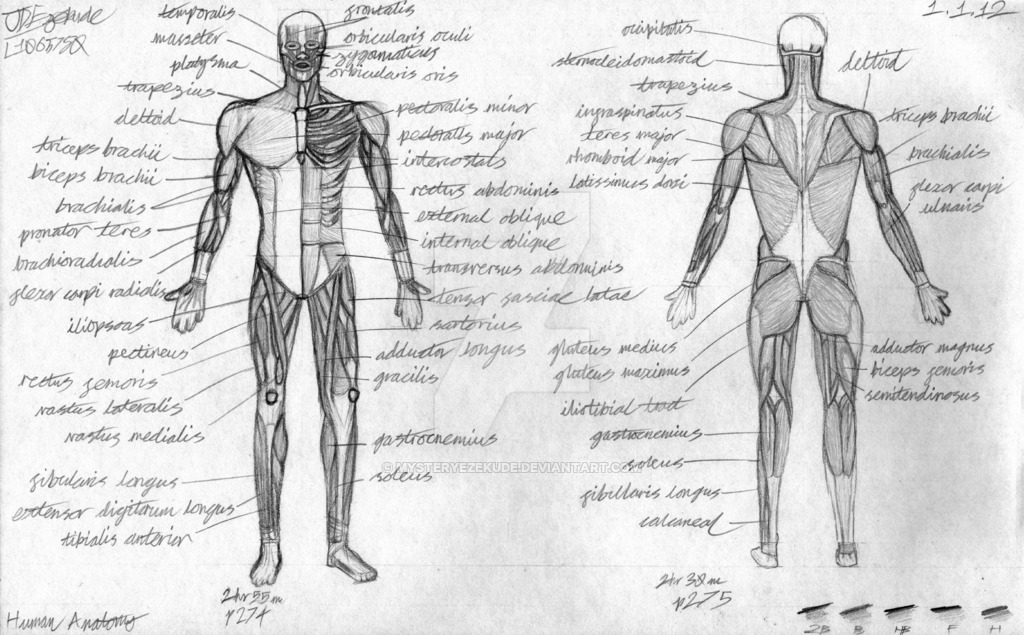 JDEzekude
L1065750
1.1.12
temporalis
masseter
platysma
trapezius
deltoid
triceps brachii
biceps brachii
brachialis
pronator teres
brachioradialis
flexor carpi radialis
iliopsoas
pectineus
rectus femoris
vastus lateralis
vastus medialis
fibularis longus
extensor digitorum longus
tibialis anterior
frontalis
orbicularis oculi
zygomaticus
orbicularis oris
pectoralis minor
pectoralis major
intercostals
rectus abdominis
external oblique
internal oblique
transversus abdominis
tensor fasciae latae
sartorius
adductor longus
gracilis
gastrocnemius
soleus
2hr 55m
p274
occipitalis
sternocleidomastoid
trapezius
infraspinatus
teres major
rhomboid major
latissimus dorsi
gluteus medius
gluteus maximus
iliotibial tract
gastrocnemius
soleus
fibillaris longus
calcaneal
deltoid
triceps brachii
brachialis
flexor carpi
ulnaris
adductor magnus
biceps femoris
semitendinosus
2hr 30m
p275
Human Anatomy
2B B HB F H
© MYSTERYEZEKUDE.DEVIANTART.COM